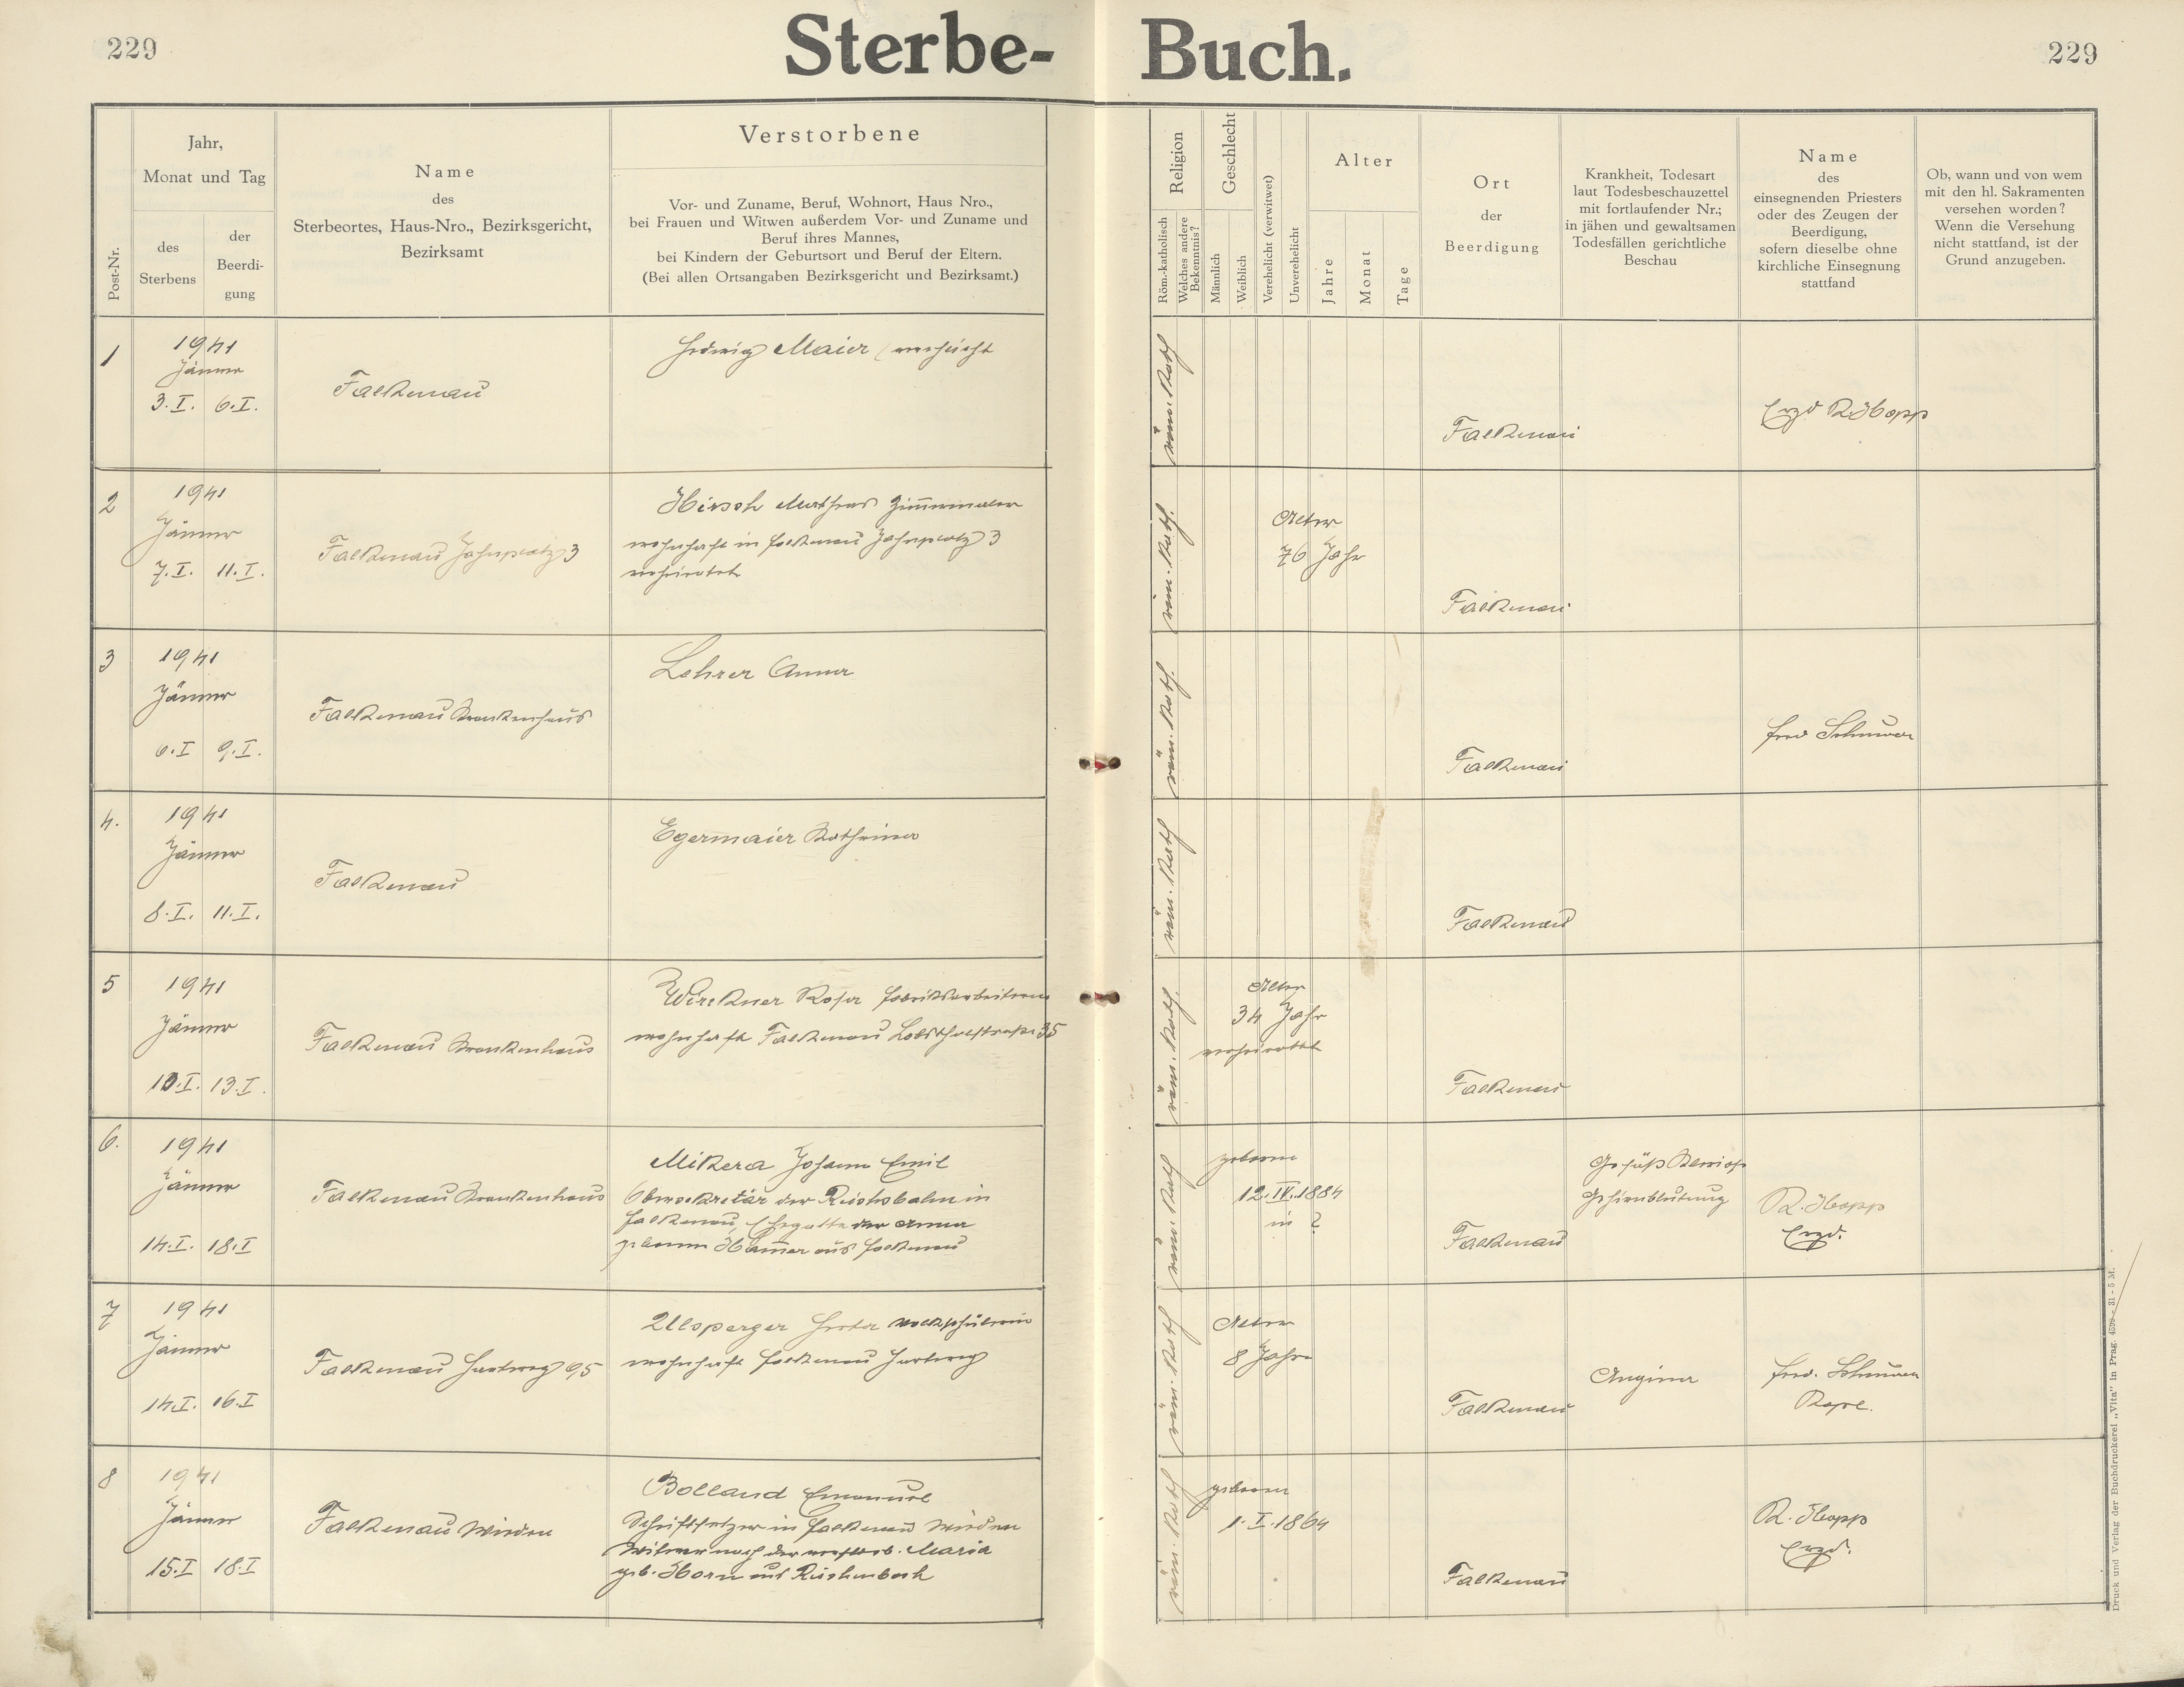 229
Sterbe-Buch.
229
Post-Nr.
Jahr,
Monat und Tag
des
Sterbens
der
Beerdi-
gung
Name
des
Sterbeortes, Haus-Nro., Bezirksgericht,
Bezirksamt
Verstorbene
Vor- und Zuname, Beruf, Wohnort, Haus Nro.,
bei Frauen und Witwen außerdem Vor- und Zuname und
Beruf ihres Mannes,
bei Kindern der Geburtsort und Beruf der Eltern.
(Bei allen Ortsangaben Bezirksgericht und Bezirksamt.)
Religion
Röm.-katholisch
Welches andere
Bekenntnis?
Geschlecht
Männlich
Weiblich
Verehelicht (verwitwet)
Unverehelicht
Alter
Jahre
Monat
Tage
Ort
der
Beerdigung
Krankheit, Todesart
laut Todesbeschauzettel
mit fortlaufender Nr.;
in jähen und gewaltsamen
Todesfällen gerichtliche
Beschau
Name
des
einsegnenden Priesters
oder des Zeugen der
Beerdigung,
sofern dieselbe ohne
kirchliche Einsegnung
stattfand
Ob, wann und von wem
mit den hl. Sakramenten
versehen worden?
Wenn die Versehung
nicht stattfand, ist der
Grund anzugeben.
1
1941
Jänner
3.I. 6.I.
Falkenau
Hedwig Maier
röm. kath
Falkenau
Erzd R Hopp
2
1941
Jänner
7.I. 11.I.
Falkenau Jahnplatz 3
Hirsch Mathias Zimmermaler
wohnhaft in Falkenau Jahnplatz 3
verheiratet
röm. kath.
Alter
76 Jahr
Falkenau
3
1941
Jänner
6.I 9.I.
Falkenau Krankenhaus
Lehrer Anna
röm. kath.
Falkenau
4.
1941
Jänner
8.I. 11.I.
Falkenau
Egermaier Katharina
röm. kath
Falkenau
5
1941
Jänner
10.I. 13.I.
Falkenau Krankenhaus
Rosa Fabriksarbeiterin
wohnhaft Falkenau 35
röm. kath.
Alter
34 Jahr
verheiratet
Falkenau
6.
1941
Jänner
14.I. 18.I
Falkenau Krankenhaus
Mikera Johann Emil
Obersekretär der Reichsbahn in
Falkenau, Ehegatte der Anna
geborene Hammer aus Falkenau
röm. kath
geboren
12.IV.1884
in ?
Falkenau
Gehirnblutung
R. Hopp
Erzd.
7
1941
Jänner
14.I. 16.I
Falkenau Hartweg 95
Ullsperger Herta Volksschülerin
wohnhaft Falkenau Hartweg
röm. kath
Alter
8 Jahre
Falkenau
Angina
Kapl.
8
1941
Jänner
15.I 18.I
Falkenau Wieden
Bolland Emanuel
Schriftsetzer in Falkenau Wieden
Witwer nach der verstorb. Maria
geb. Horn aus Reichenbach
röm. kath
geboren
1.I.1864
Falkenau
R. Hopp
Erzd.
Druck und Verlag der Buchdruckerei „Vita" in Prag.